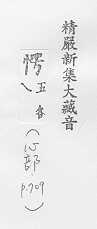 精嚴新集大藏音
愕 五各
(心部
p.709)